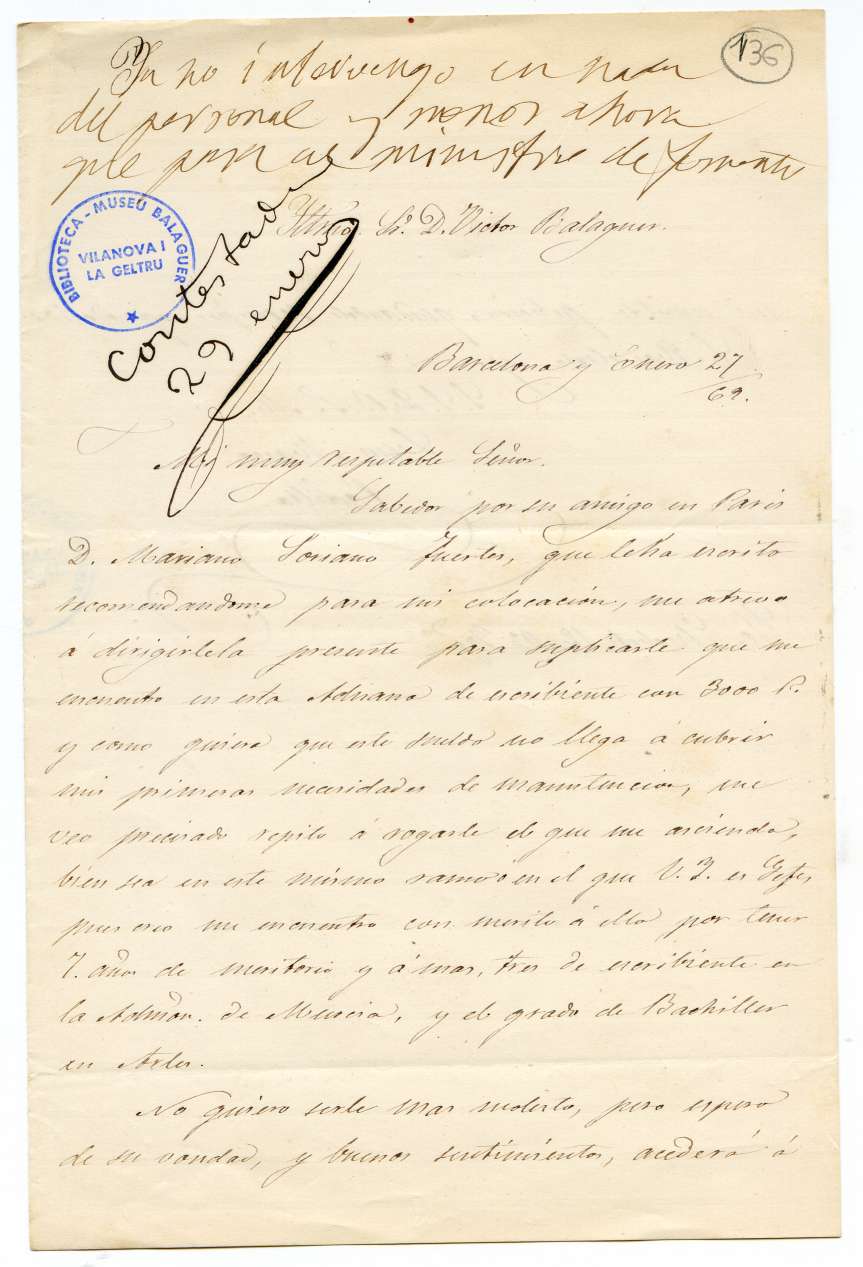 136
Ya no intervengo en nada
del personal y menos ahora
que pasa al ministro de fomento
BIBLIOTECA - MUSEU BALAGUER
VILANOVA I
LA GELTRU
contestada
29 enero
Sr. D. Victor Balaguer.
Barcelona y Enero 27/69.
Mi muy respetable Señor.
Sabedor por su amigo en Paris
D. Mariano Soriano Fuertes, que le ha escrito
recomendandome para mi colocacion, me atrevo
á dirigirle la presente para suplicarle que me
encuentro en esta Aduana de escribiente con 3000 R.
y como quiera que este sueldo no llega á cubrir
mis primeras necesidades de manutencion, me
veo precisado repito á rogarle el que me ascienda,
bien sea en este mismo ramo ó en el que V. I. es Gefe,
pues creo me encuentro con merito á ello por tener
7. años de meritorio y á mas, tres de escribiente en
la Admon. de Murcia, y el grado de Bachiller
en Artes.
No quiero serle mas molesto, pero espero
de su vondad, y buenos sentimientos, accederá á